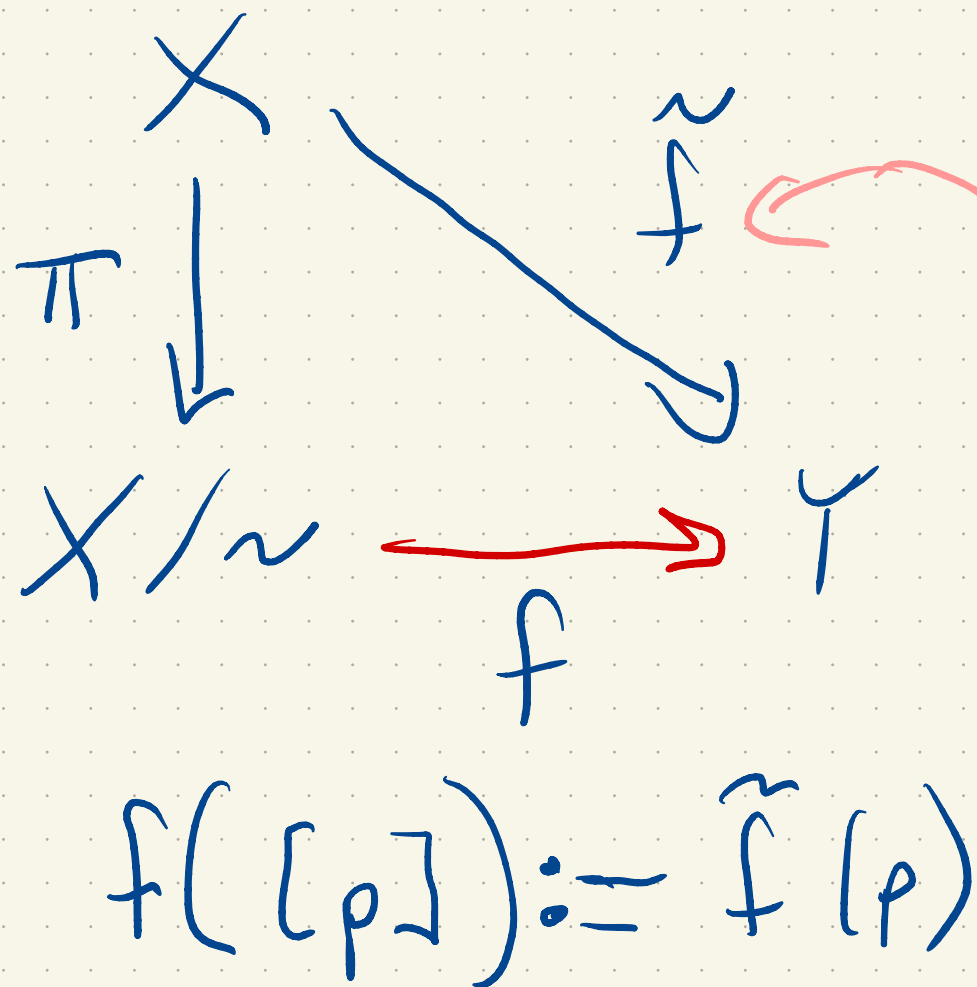 X
f̃
π
X/~ Y
f
f([p]) := f̃(p)